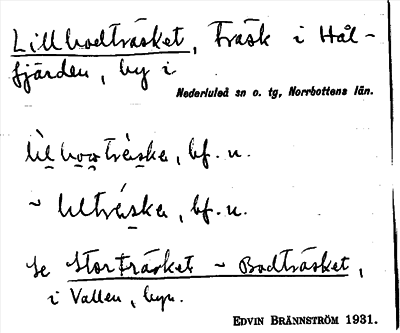 Lillbodträsket, träsk i Hål-
fjärden, by i
Nederluleå sn o. tg, Norrbottens län.
bf. n.
~ liltrèska, bf. n.
Se Storträsket ~ Bodträsket,
i Vallen, byn.
EDVIN BRÄNNSTRÖM 1931.